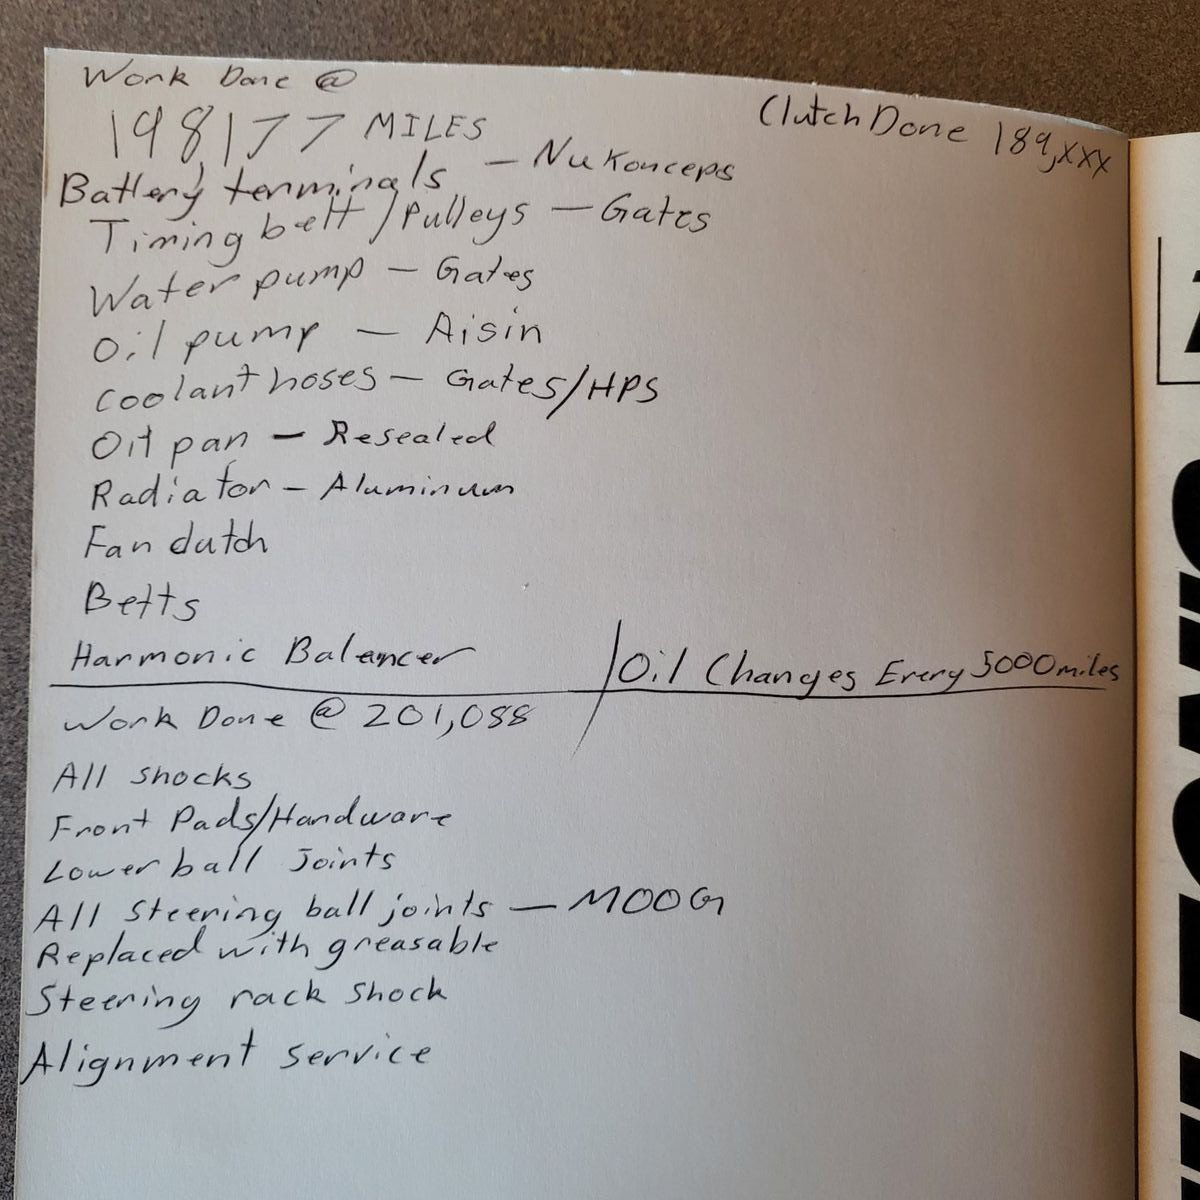 Work Done @
198,177 MILES
Clutch Done 189,xxx
Battery terminals - Nu Konceps
Timing belt/Pulleys - Gates
Water pump - Gates
Oil pump - Aisin
Coolant hoses - Gates/HPS
Oil pan - Resealed
Radiator - Aluminum
Fan clutch
Belts
Harmonic Balancer
Oil Changes Every 5000 miles
Work Done @ 201,088
All shocks
Front Pads/Hardware
Lower ball Joints
All Steering ball joints - MOOG
Replaced with greasable
Steering rack shock
Alignment service